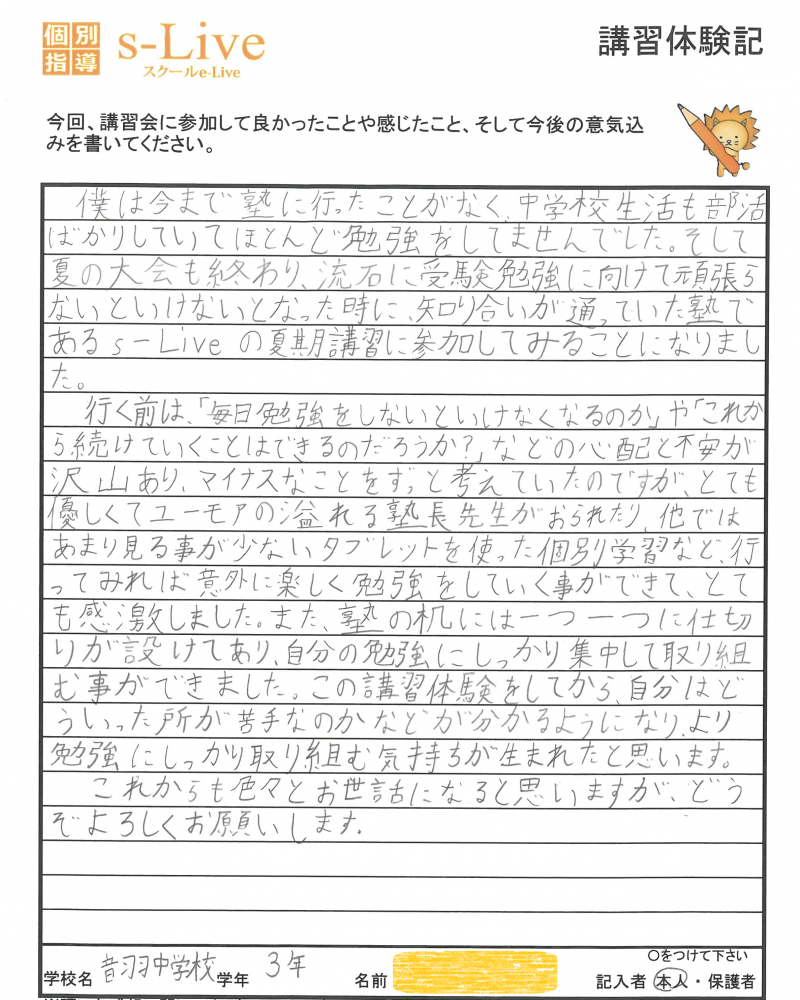 個別
指導
s-Live
スクールe-Live
講習体験記
今回、講習会に参加して良かったことや感じたこと、そして今後の意気込
みを書いてください。
僕は今まで塾に行ったことがなく、中学校生活も部活
ばかりしていてほとんど勉強をしてませんでした。そして
夏の大会も終わり、流石に受験勉強に向けて頑張ら
ないといけないとなった時に、知り合いが通っていた塾で
あるs-Liveの夏期講習に参加してみることになりまし
た。
行く前は、「毎日勉強をしないといけなくなるのか」や「これか
ら続けていくことはできるのだろうか?」などの心配と不安が
沢山あり、マイナスなことをずっと考えていたのですが、とても
優しくてユーモアの溢れる塾長先生がおられたり、他では
あまり見る事が少ないタブレットを使った個別学習など、行
ってみれば意外に楽しく勉強をしていく事ができて、とて
も感激しました。また、塾の机には一つ一つに仕切
りが設けてあり、自分の勉強にしっかり集中して取り組
む事ができました。この講習体験をしてから、自分はど
ういった所が苦手なのかなどが分かるようになり、より
勉強にしっかり取り組む気持ちが生まれたと思います。
これからも色々とお世話になると思いますが、どう
ぞよろしくお願いします。
〇をつけて下さい
学校名 音羽中学校 学年 3年 名前 記入者 本人・保護者